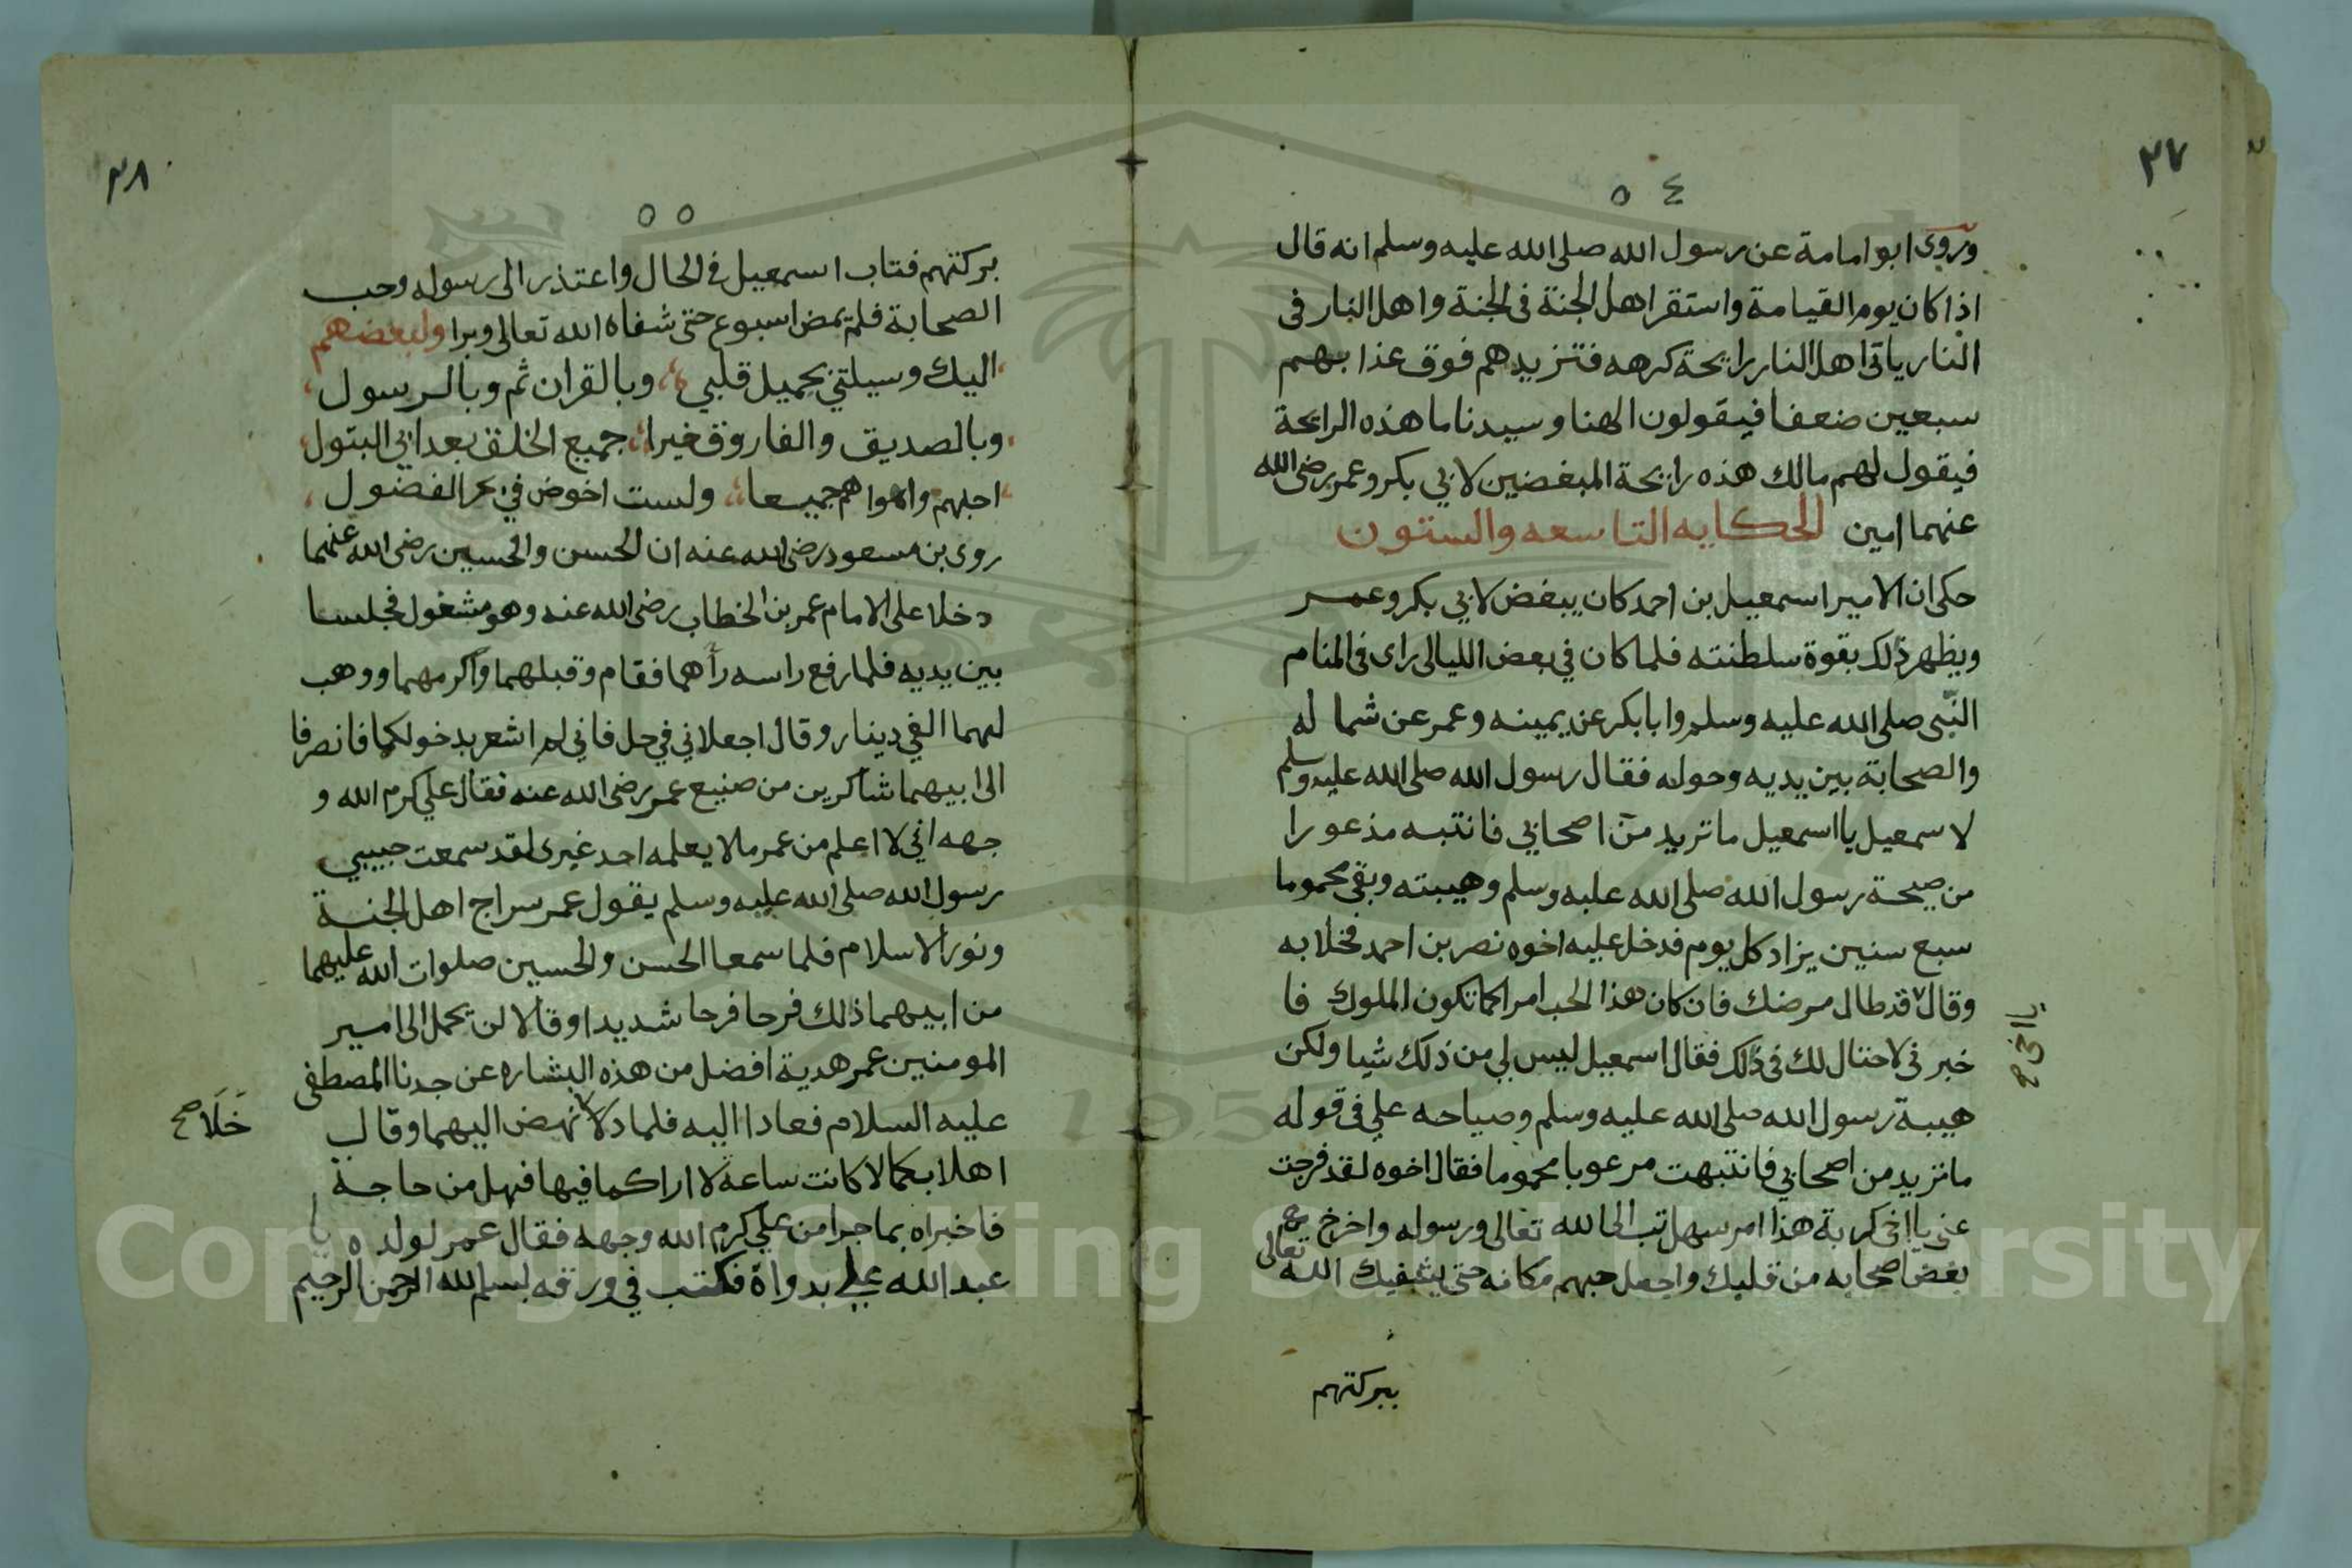 ٣٧
٥٤
وروى ابو امامة عن رسول الله صلى الله عليه وسلم انه قال
اذا كان يوم القيامة واستقر اهل الجنة فى الجنة واهل النار فى
النار ياتى اهل النار رايحة كرهه فتزيدهم فوق عذابهم
سبعين ضعفا فيقولون الهنا وسيدنا ما هذه الرايحة
فيقول لهم مالك هذه رايحة المبغضين لابي بكر وعمر رضى الله
عنهما امين الحكايه التاسعه والستون
حكى ان الامير اسمعيل بن احمد كان يبغض لابي بكر وعمر
ويظهر ذلك بقوة سلطنته فلما كان في بعض الليالى راى فى المنام
النبى صلى الله عليه وسلم وابا بكر عن يمينه وعمر عن شماله
والصحابة بين يديه وحوله فقال رسول الله صلى الله عليه وسلم
لاسمعيل يا اسمعيل ما تريد من اصحابي فانتبه مذعورا
من صيحة رسول الله صلى الله عليه وسلم وهيبته وبقى محموما
سبع سنين يزاد كل يوم فدخل عليه اخوه نصر بن احمد فخلا به
وقال قد طال مرضك فان كان هذا الحب امرا كما تكون الملوك فا
يا اخى صح
خبرنى لاحتال لك فى ذلك فقال اسمعيل ليس لي من ذلك شيا ولكن
هيبة رسول الله صلى الله عليه وسلم وصياحه علي فى قوله
ما تريد من اصحابي فانتبهت مرعوبا محموما فقال اخوه لقد فرجت
عنى يا اخى كربة هذا امر سهل تب الى الله تعالى ورسوله واخرج
بغض اصحابه من قلبك واجعل حبهم مكانه حتى يشفيك الله تعالى
ببركتهم
٣٨
٥٥
بركتهم فتاب اسمعيل فى الحال واعتذر الى رسوله وحب
الصحابة فلم تمض اسبوع حتى شفاه الله تعالى وبرا ولبعضهم
اليك وسيلتي بجميل قلبي وبالقران ثم وبالرسول
وبالصديق والفاروق خيرا جميع الخلق بعد ابي البتول
احبهم واهواهم جميعا ولست اخوض في بحر الفضول
روى بن مسعود رضى الله عنه ان الحسن والحسين رضى الله عنهما
دخلا على الامام عمر بن الخطاب رضى الله عنه وهو مشغول فجلسا
بين يديه فلما رفع راسه رأهما فقام وقبلهما واكرمهما ووهب
لهما الفي دينار وقال اجعلاني في حل فاني لم اشعر بدخولكما فانصرفا
الى ابيهما شاكرين من صنيع عمر رضى الله عنه فقال علي كرم الله و
جهه اني لا اعلم من عمر ما لا يعلمه احد غيرى لقد سمعت حبيبي
رسول الله صلى الله عليه وسلم يقول عمر سراج اهل الجنة
ونور الاسلام فلما سمعا الحسن والحسين صلوات الله عليهما
من ابيهما ذلك فرحا فرحا شديدا وقالا لن يحمل الى امير
المومنين عمر هدية افضل من هذه البشاره عن جدنا المصطفى
عليه السلام فعادا اليه فلما دلا نهض اليهما وقال
خَلَا صح
اهلا بكما لا كانت ساعة لا اراكما فيها فهل من حاجة
فاخبراه بما جرا من علي كرم الله وجهه فقال عمر لولده يا
عبد الله علي بدواة فكتب في ورقه بسم الله الرحمن الرحيم
Copyright © King Saud University
1957